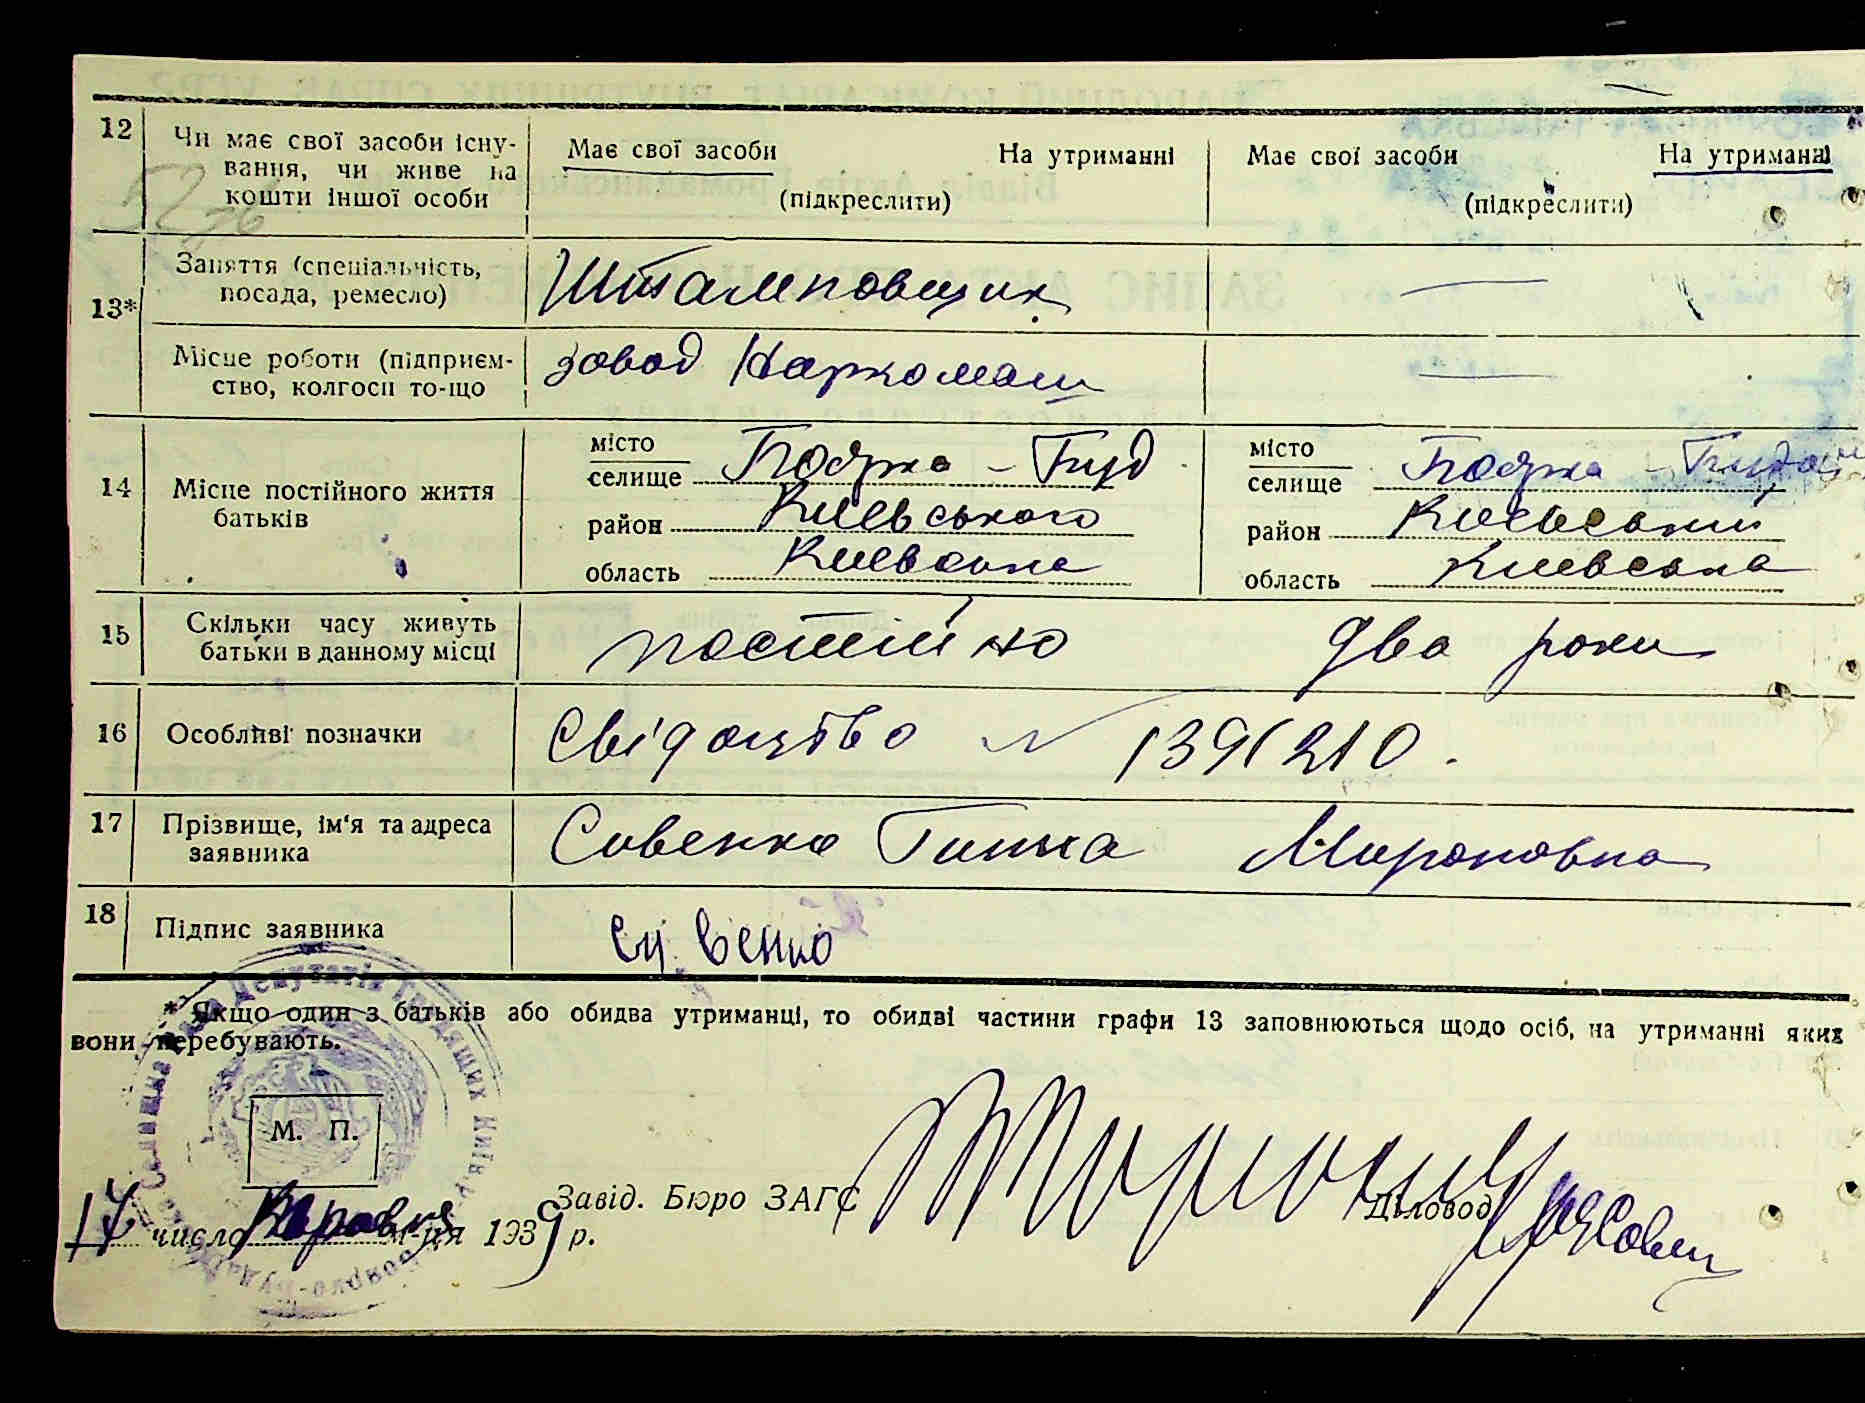 12 Чи має свої засоби існу-
вання, чи живе на
кошти іншої особи
Має свої засоби На утриманні
(підкреслити)
Має свої засоби На утриманні
(підкреслити)
13* Заняття (спеціальність,
посада, ремесло)
Штамповщик
Місце роботи (підприєм-
ство, колгосп то-що
завод Наркомаш
14 Місце постійного життя
батьків
місто
селище Боярка - Буд
район Киевського
область Киевська
місто
селище Боярка - Буда
район Киевський
область Киевська
15 Скільки часу живуть
батьки в данному місці
постійно два роки
16 Особливі позначки
Свідоцтво N 1391210.
17 Прізвище, ім'я та адреса
заявника
Савенко Ганна Мироновна
18 Підпис заявника
* Якщо один з батьків або обидва утриманці, то обидві частини графи 13 заповнюються щодо осіб, на утриманні яких
вони перебувають.
М. П.
Завід. Бюро ЗАГС
Діловод
17 число м-ця 1939 р.